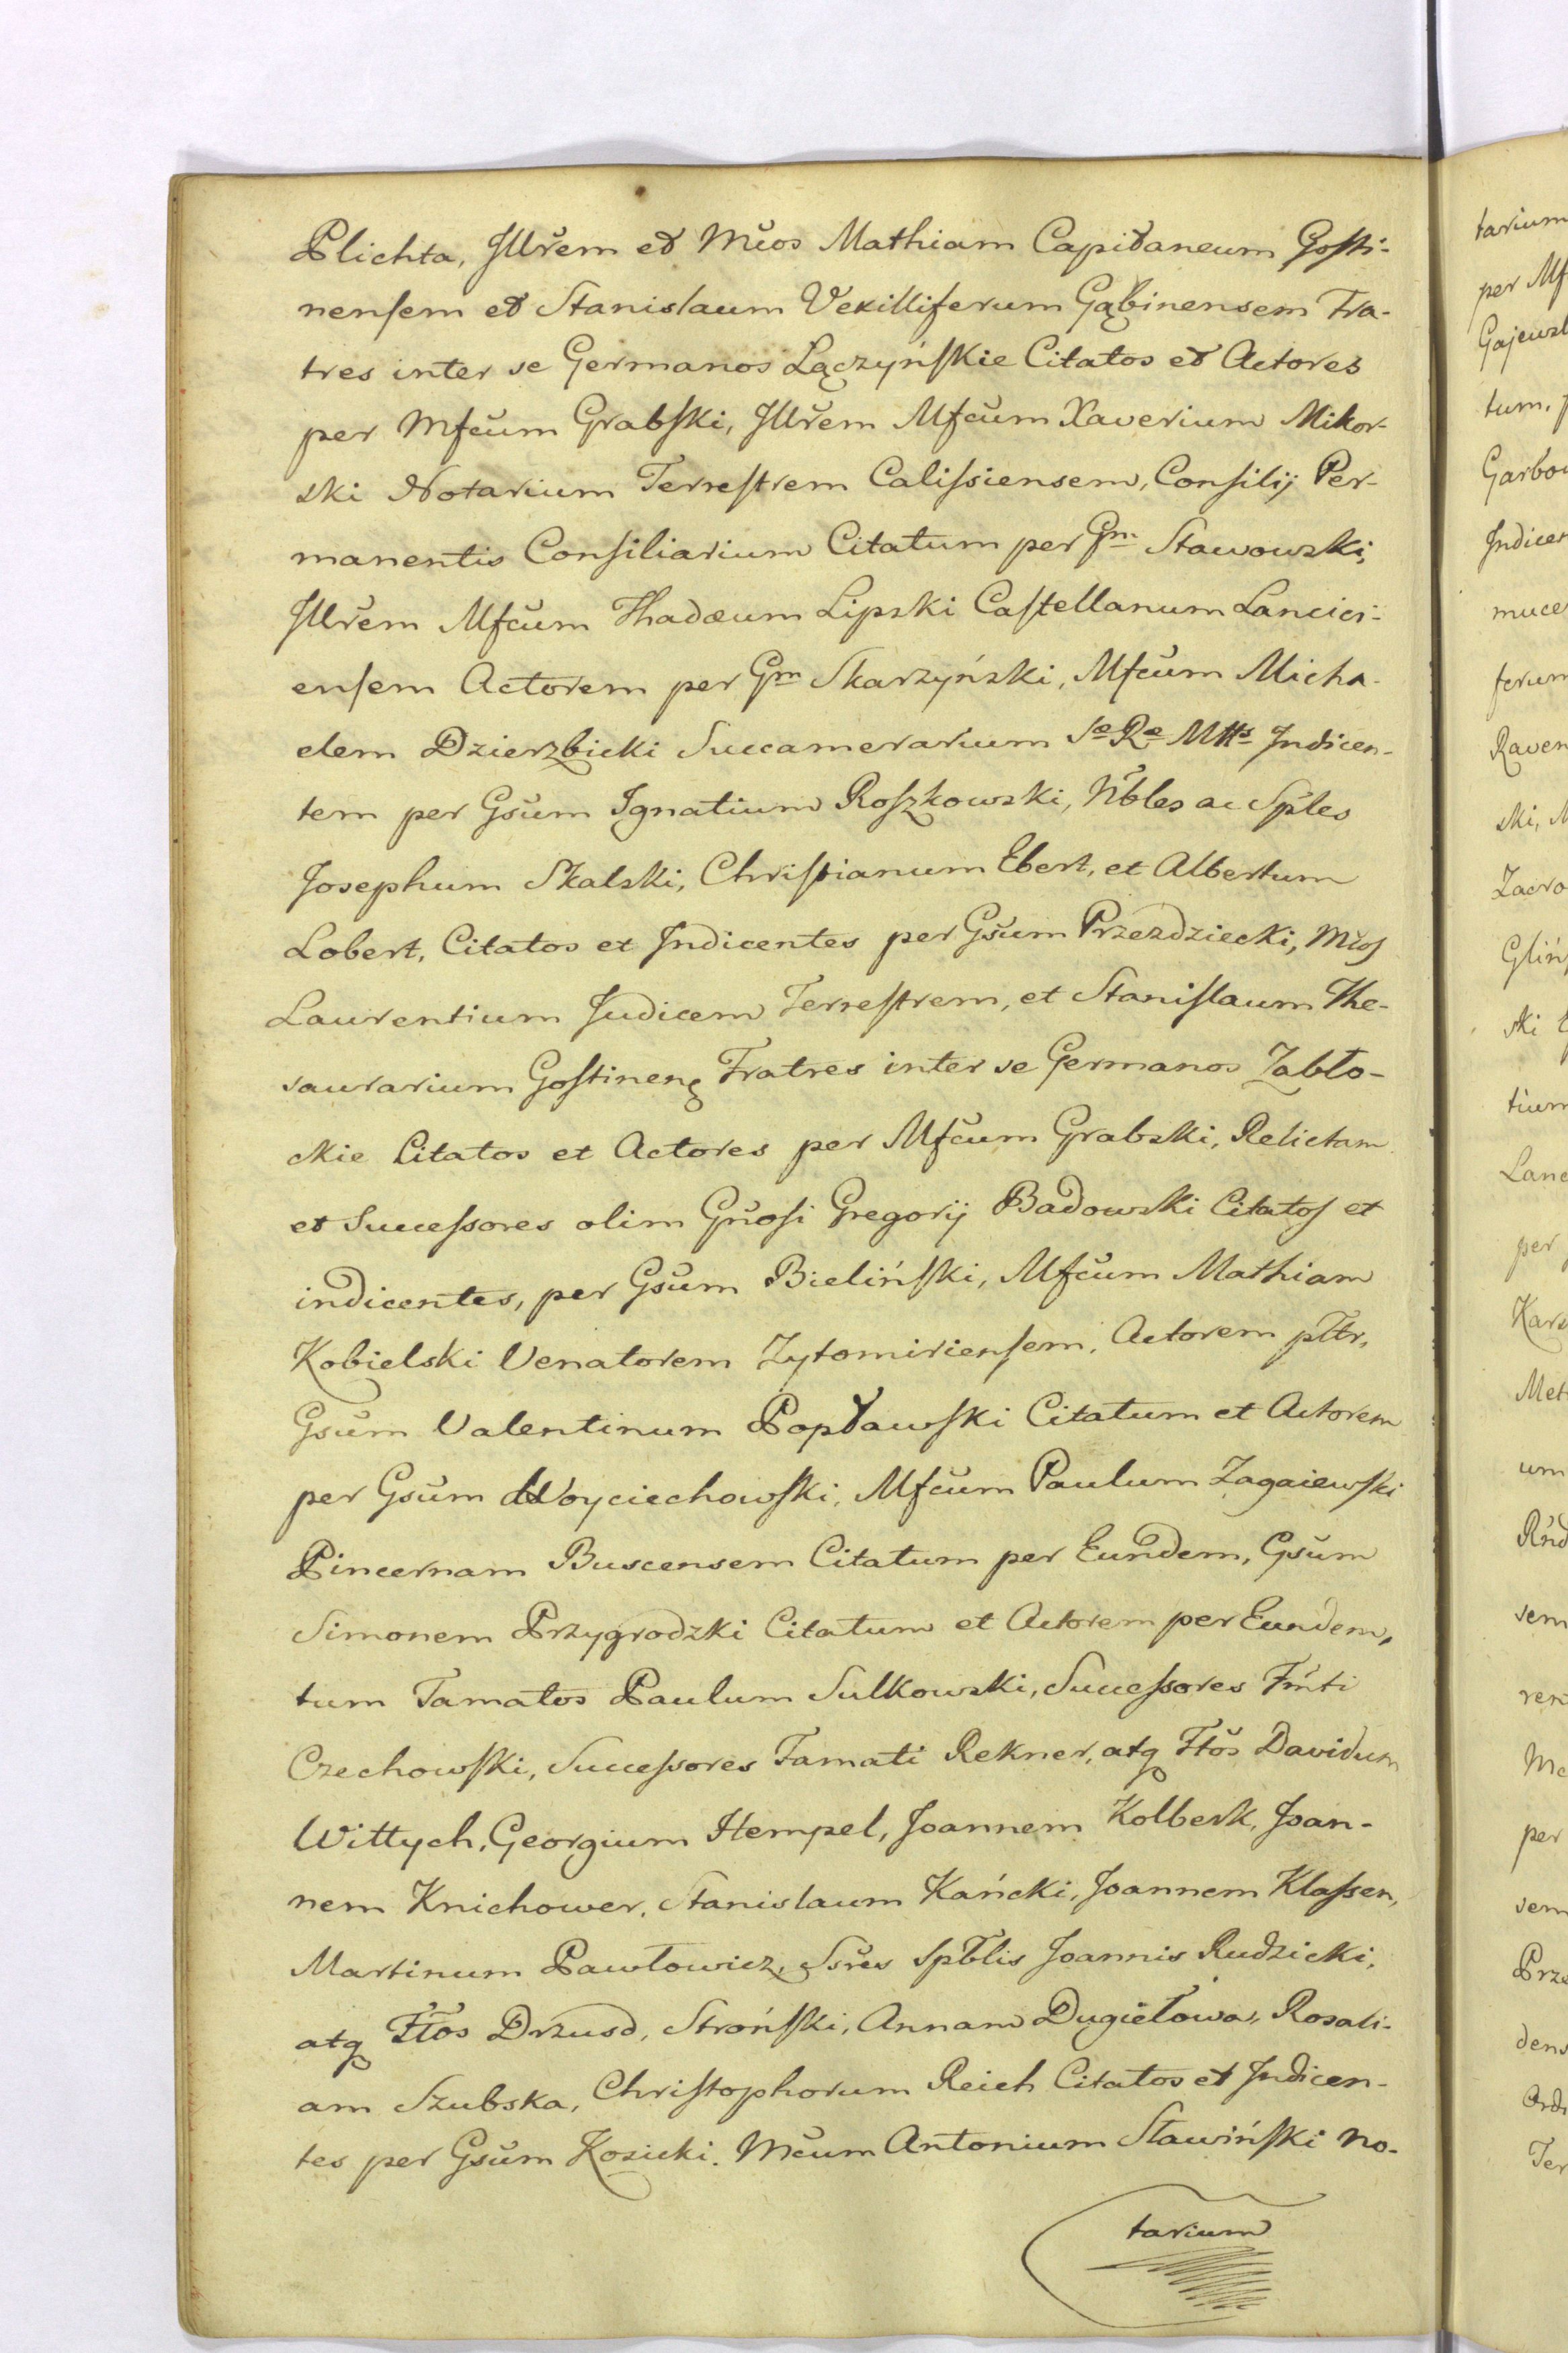 Plichta, Jllřem et Mčos Mathiam Capitaneum Gosti-
nensem et Stanislaum Vexilliferum Gąbinensem Fra-
tres inter se Germanos Łączyńskie Citatos et Actores
per Mfčum Grabski, Jllřem Mfčum Xaverium Mikor-
ski Notarium Terrestrem Calissiensem, Consilij Per-
manentis Consiliarium Citatum per Gm Stawowski,
Jllřem Mfčum Thadæum Lipski Castellanum Lancici-
ensem Actorem per Gm Skarzyński, Mfčum Micha-
elem Dzierzbicki Succamerarium Se Re Mtts Indicen-
tem per Gsům Ignatium Roszkowski, Nb̃les ac Spľes
Josephum Skalski, Christianum Ebert, et Albertum
Lobert, Citatos et Indicentes per Gsům Przezdziecki, Mčos
Laurentium Judicem Terrestrem, et Stanislaum The-
saurarium Gostinenȩ Fratres inter se Germanos Zabło-
ckie Citatos et Actores per Mfčum Grabski, Relictam
et Successores olim Gňosi Gregorij Badowski Citatos et
indicentes, per Gsům Bieliński, Mfčum Mathiam
Kobielski Venatorem Zytomiriensem, Actorem pltr,
Gsům Valentinum Popławski Citatum et Actorem
per Gsům Woyciechowski, Mfčum Paulum Zagaiewski
Pincernam Buscensem Citatum per Eundem, Gsům
Simonem Przygrodzki Citatum et Actorem per Eundem,
tum Famatos Paulum Sulkowski, Successores Fm̃ti
Czechowski, Successores Famati Rekner, atq Ftõs Davidum
Wittych, Georgium Hempel, Joannem Kolberk, Joan-
nem Knichower, Stanislaum Kańcki, Joannem Klassen,
Martinum Pawłowicz, Sřes Spb̃lis Joannis Rudzicki,
atq Ftõs Drzusd, Stroński, Annam Dugiełowa, Rosali-
am Szubska, Christophorum Reich Citatos et Indicen-
tes per Gsům Kosicki. Mčum Antonium Sławiński No-
tarium
tarium
per Mf
tum,
mucer
ferum
Raven
ski, M
Zacro
tium
Lanc
per
um
sem
per
sem
Prze
dens
Ter